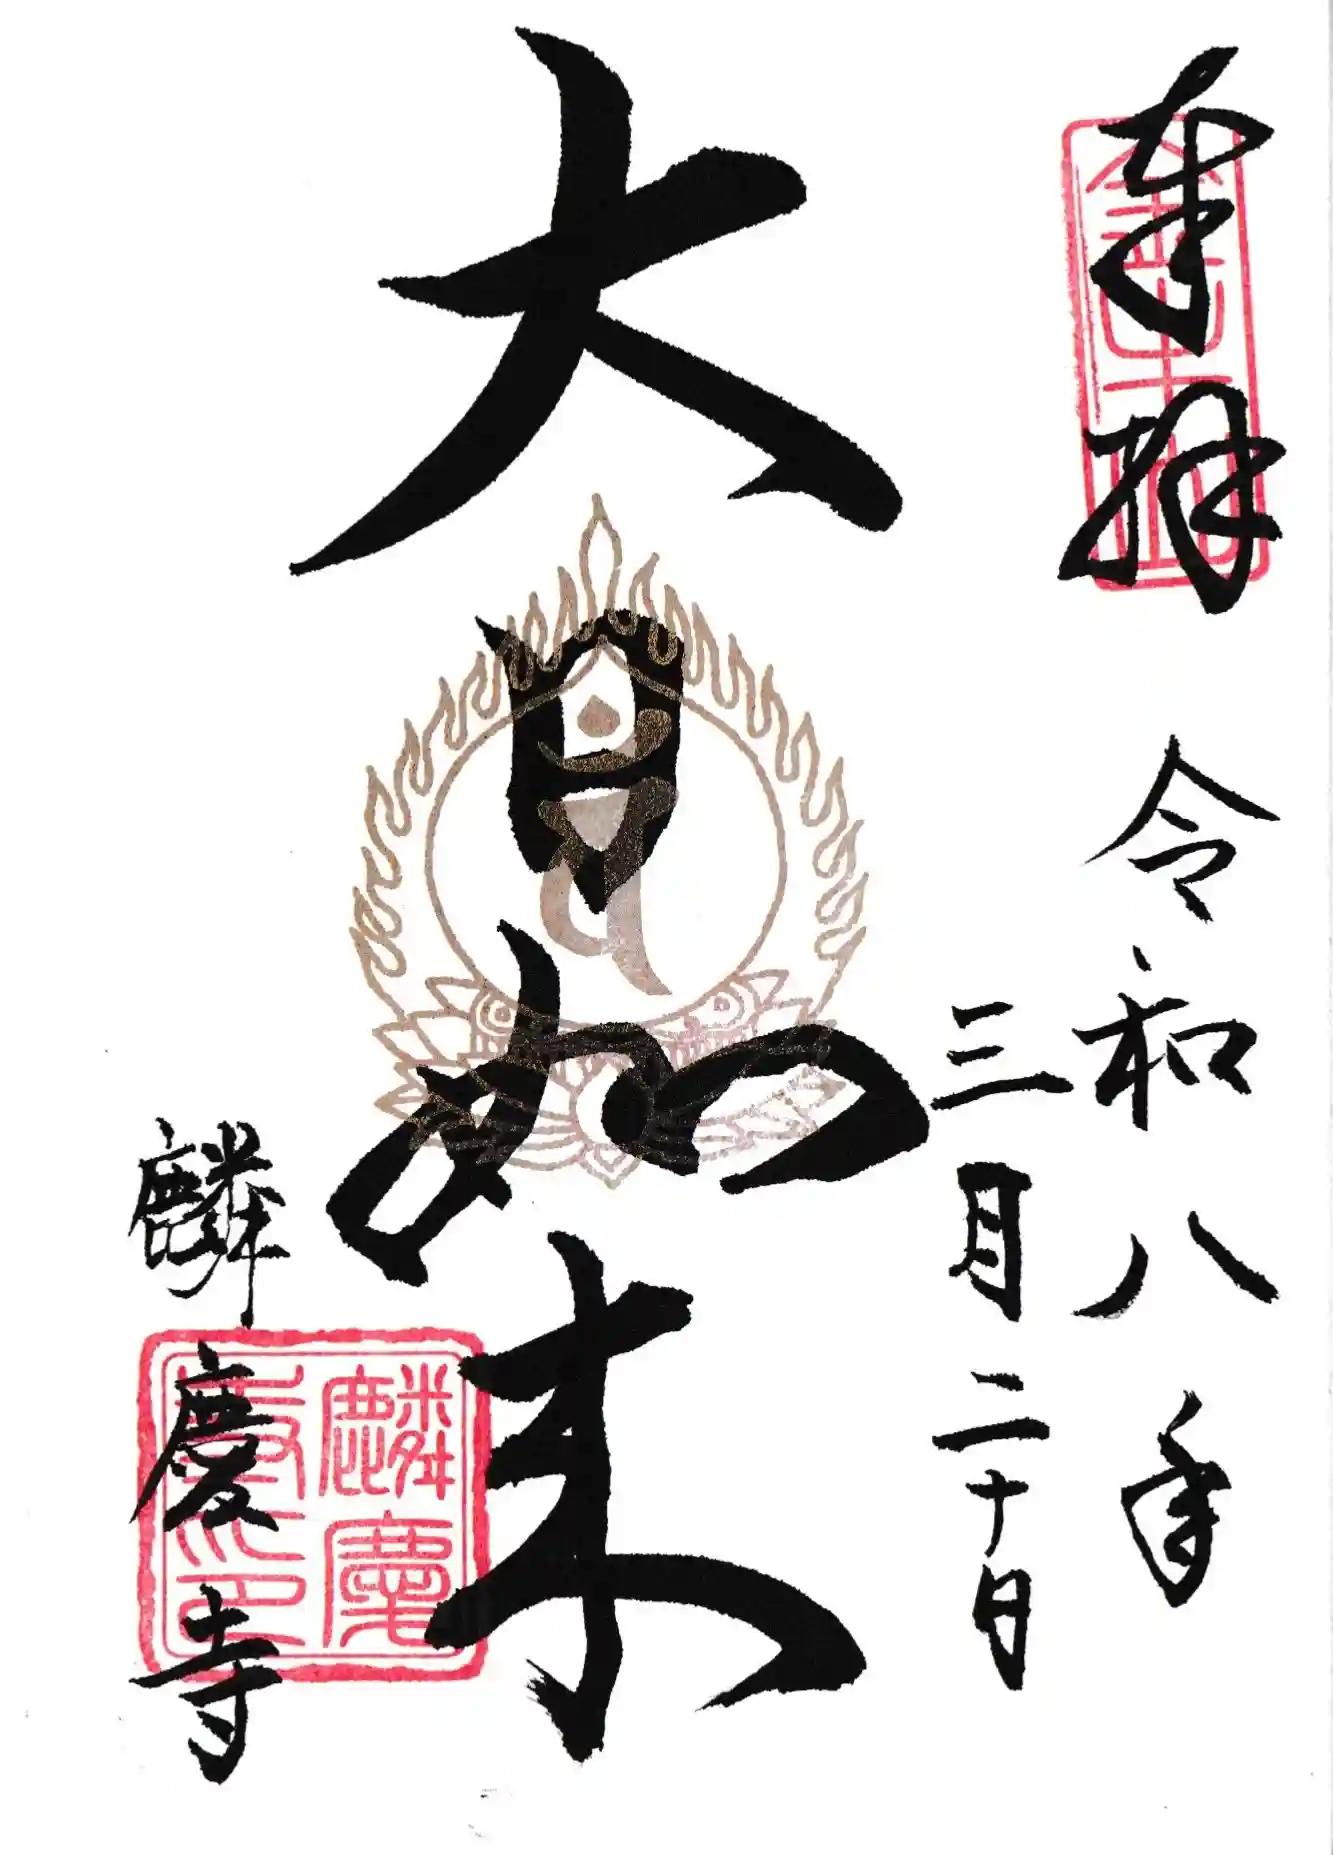 奉拝
令和八年
三月二十日
大日如来
麟慶寺
麟慶